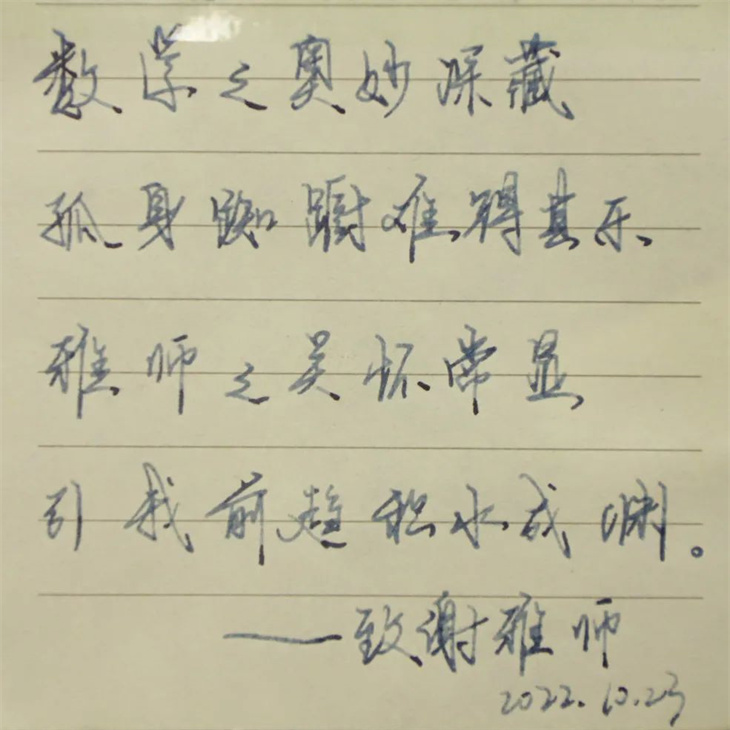 数学之奥妙深藏
孤身踟蹰难得其乐
雅师之关怀常显
引我前趋积水成渊。
——致谢雅师
2022.10.23